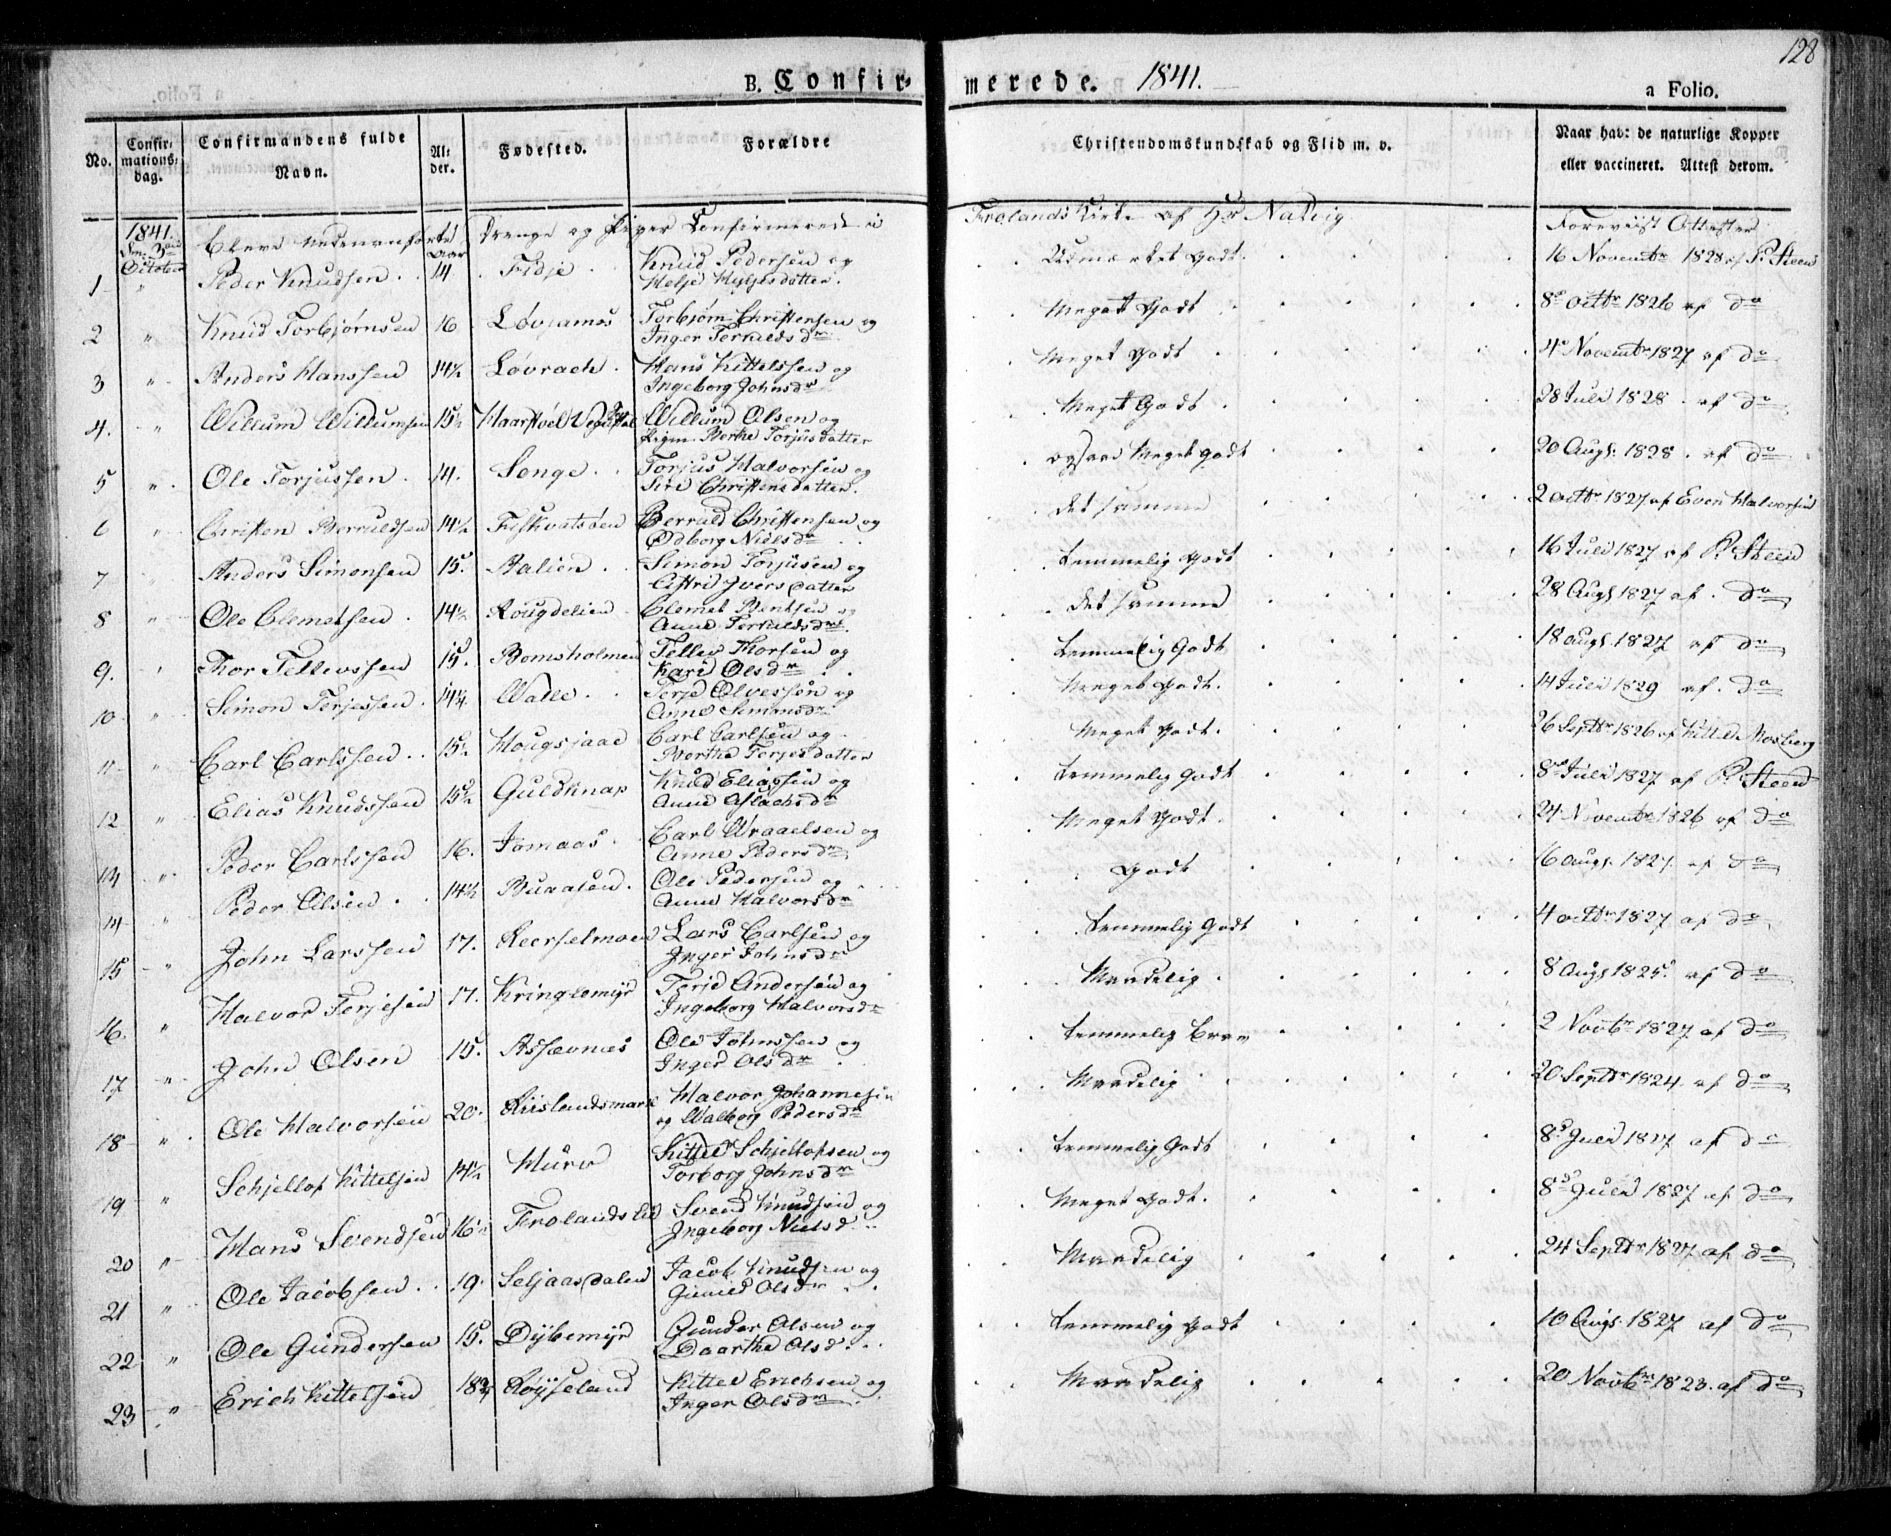 128
B. Confir-
merede. 1841.
a Folio.
No.
Confir-
mations-
dag.
Confirmandens fulde
Navn.
Al-
der.
Fødested.
Forældre
Christendomskundskab og Flid m. v.
Naar hav: de naturlige Kopper
eller vaccineret. Attest derom.
1841.
October
Drenge og Piger Confirmerede i Frolands Kirke af Hr Natvig
Foreviist Attester
1 " Peder Knudsen 14 Fidje Knud Pedersen og Udmærket Godt 16 Novembr 1828 af P. Steen
2 " Knud Torbjørnsen 16 Løvjomås Torbjørn Christensen og Meget Godt 8de octbr 1826 af do
Inger Terkelds dr
3 " Anders Hanssen 14½ Løvrach Hans Kittelssen og Meget Godt 4 Novembr 1827 af do
Ingeborg Johnsdr
4. " Willum Willumsen 15½ Willum Olsen og Meget Godt 28 Juli 1828 af do
Pigen Berthe Torjusdatter
5 " Ole Torjussen 14. Songe Torjus Halvorsen og ogsaa Meget godt 20 Augs. 1828 af do
Siri Christensdatter.
6 " Christen Berruldsen 14½ Berruld Christensen og det samme 2 octbr 1827 af Even Halvorsen
Odborg Nielsdr
7 " Anders Simonsen 15. Aalien Simon Torjusen og temmelig Godt 16 Juli 1827 af P. Steen
Iversdatter
8 " Ole Clemetsen 14½ Rougdelien Clemet Bentsen og det samme 28 Augs 1827 af do
Anne
9. " Thor Tellevssen 15. Bomsholmen Tellev Thorsen og temmelig Godt 18 augs. 1827 af do
Kari Olsdr
10 " Simon Terjessen 14¼ Walle Terje Olvessøn og Meget Godt. 14 Juli 1829 af do
Anne Simonsdr
11 " Carl Carlssen 15½ Hougsjaae Carl Carlsen og Meget Godt. 26 Septbr 1826 af Kittel Mosberg
Berthe Terjesdatter
12 " Elias Knudssen 15½ Guldknap Knud Eliassen og temmelig Godt 8de Juli 1827 af P. Steen
Anne Aslachsdr
13 " Peder Carlssen 16. Jomaas Carl Graaelsen og Meget Godt. 24 Novembr 1826 af do
Anne Pedersdr
14 " Peder Olsen 14½ Buaasen Ole Pedersen og Godt 16 augs. 1827 af do
Anne Halvorsdr
15 " John Larssen 17. Reerselmoen Lars Carlsen og temmelig Godt 4 octbr 1827 af do
Inger Johnsdr
16. " Halvor Terjesen 17. Kringlemyr Terje Andersen og Maadelig 8 Augs 1825 af do
Ingeborg Halvorsdr
17 " John Olsen 15. Assævnæs Ole Johnssen og temmelig Brav 2 Novbr 1827 af do
Inger Olsdr
18 " Ole Halvorsen 20. Riislandsmark Halvor Johannesen Maadelig 20 Septbr 1824 af do
og Walborg Pedersdr
19 " Schjellof Kittelsen 14½ Mura Kittel Schjellofsen og temmelig Godt 8de Juli 1827 af do
Torborg Johnsdr
20 " Hans Svendsen 16½ Frolandslid Svend Knudsen og Meget Godt. 8de Juli 1827 af do
Ingeborg Nielsd.
21 " Ole Jacobsen 19. Seljaasdalen Jacob Knudsen og Maadelig 24 Septbr 1827 af do
Gunild Olsdr
22 " Ole Gundersen 15. Dybemyr Gunder Olsen og temmelig Godt 10 Augs. 1827 af do
Daarthe Olsd.
23 " Erich Kittelsen 18¾ Røyseland Kittel Erichsen og Maadelig 20 Novbr 1823 af do
Inger Olsdr